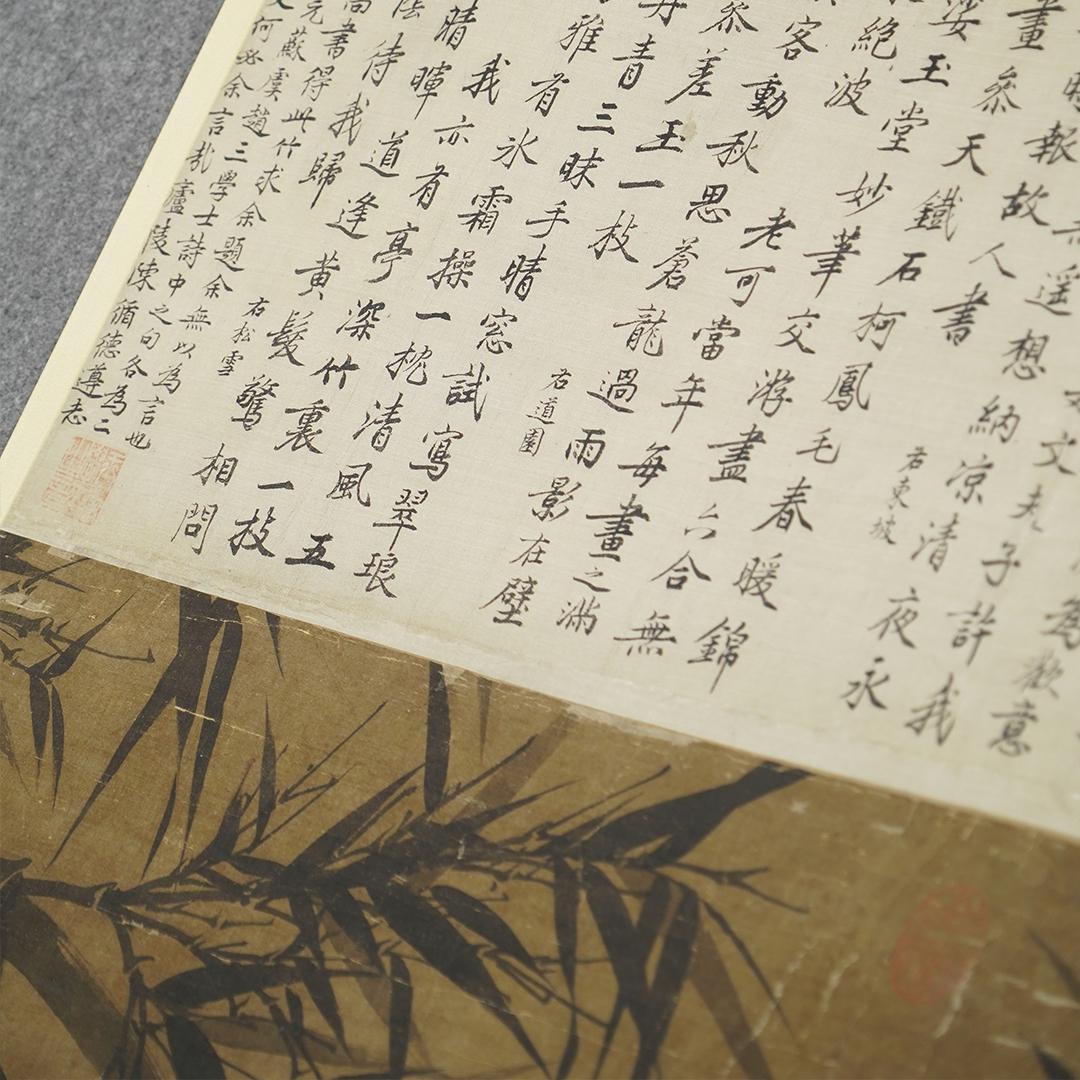 為歡意
文夫子許我
遙想納涼清夜永
報故人書
右東坡
畫參天鐵石柯鳳毛春暖錦
娑玉堂妙筆交游盡六合無
絕波老可當年每畫之滿
客動秋思蒼龍過雨影在壁
參差玉一枝
右道園
丹青三昧手晴窓試寫翠琅
雅有氷霜操一枕清風五
我亦有亭深竹裏一枝
晴暉道逢黃髮驚相問
法待我歸
右松雪
尚書得此竹求余題余無以為言也
元蘇虞趙三學士詩中之句各為二
何必余言哉廬陵陳循德遵志